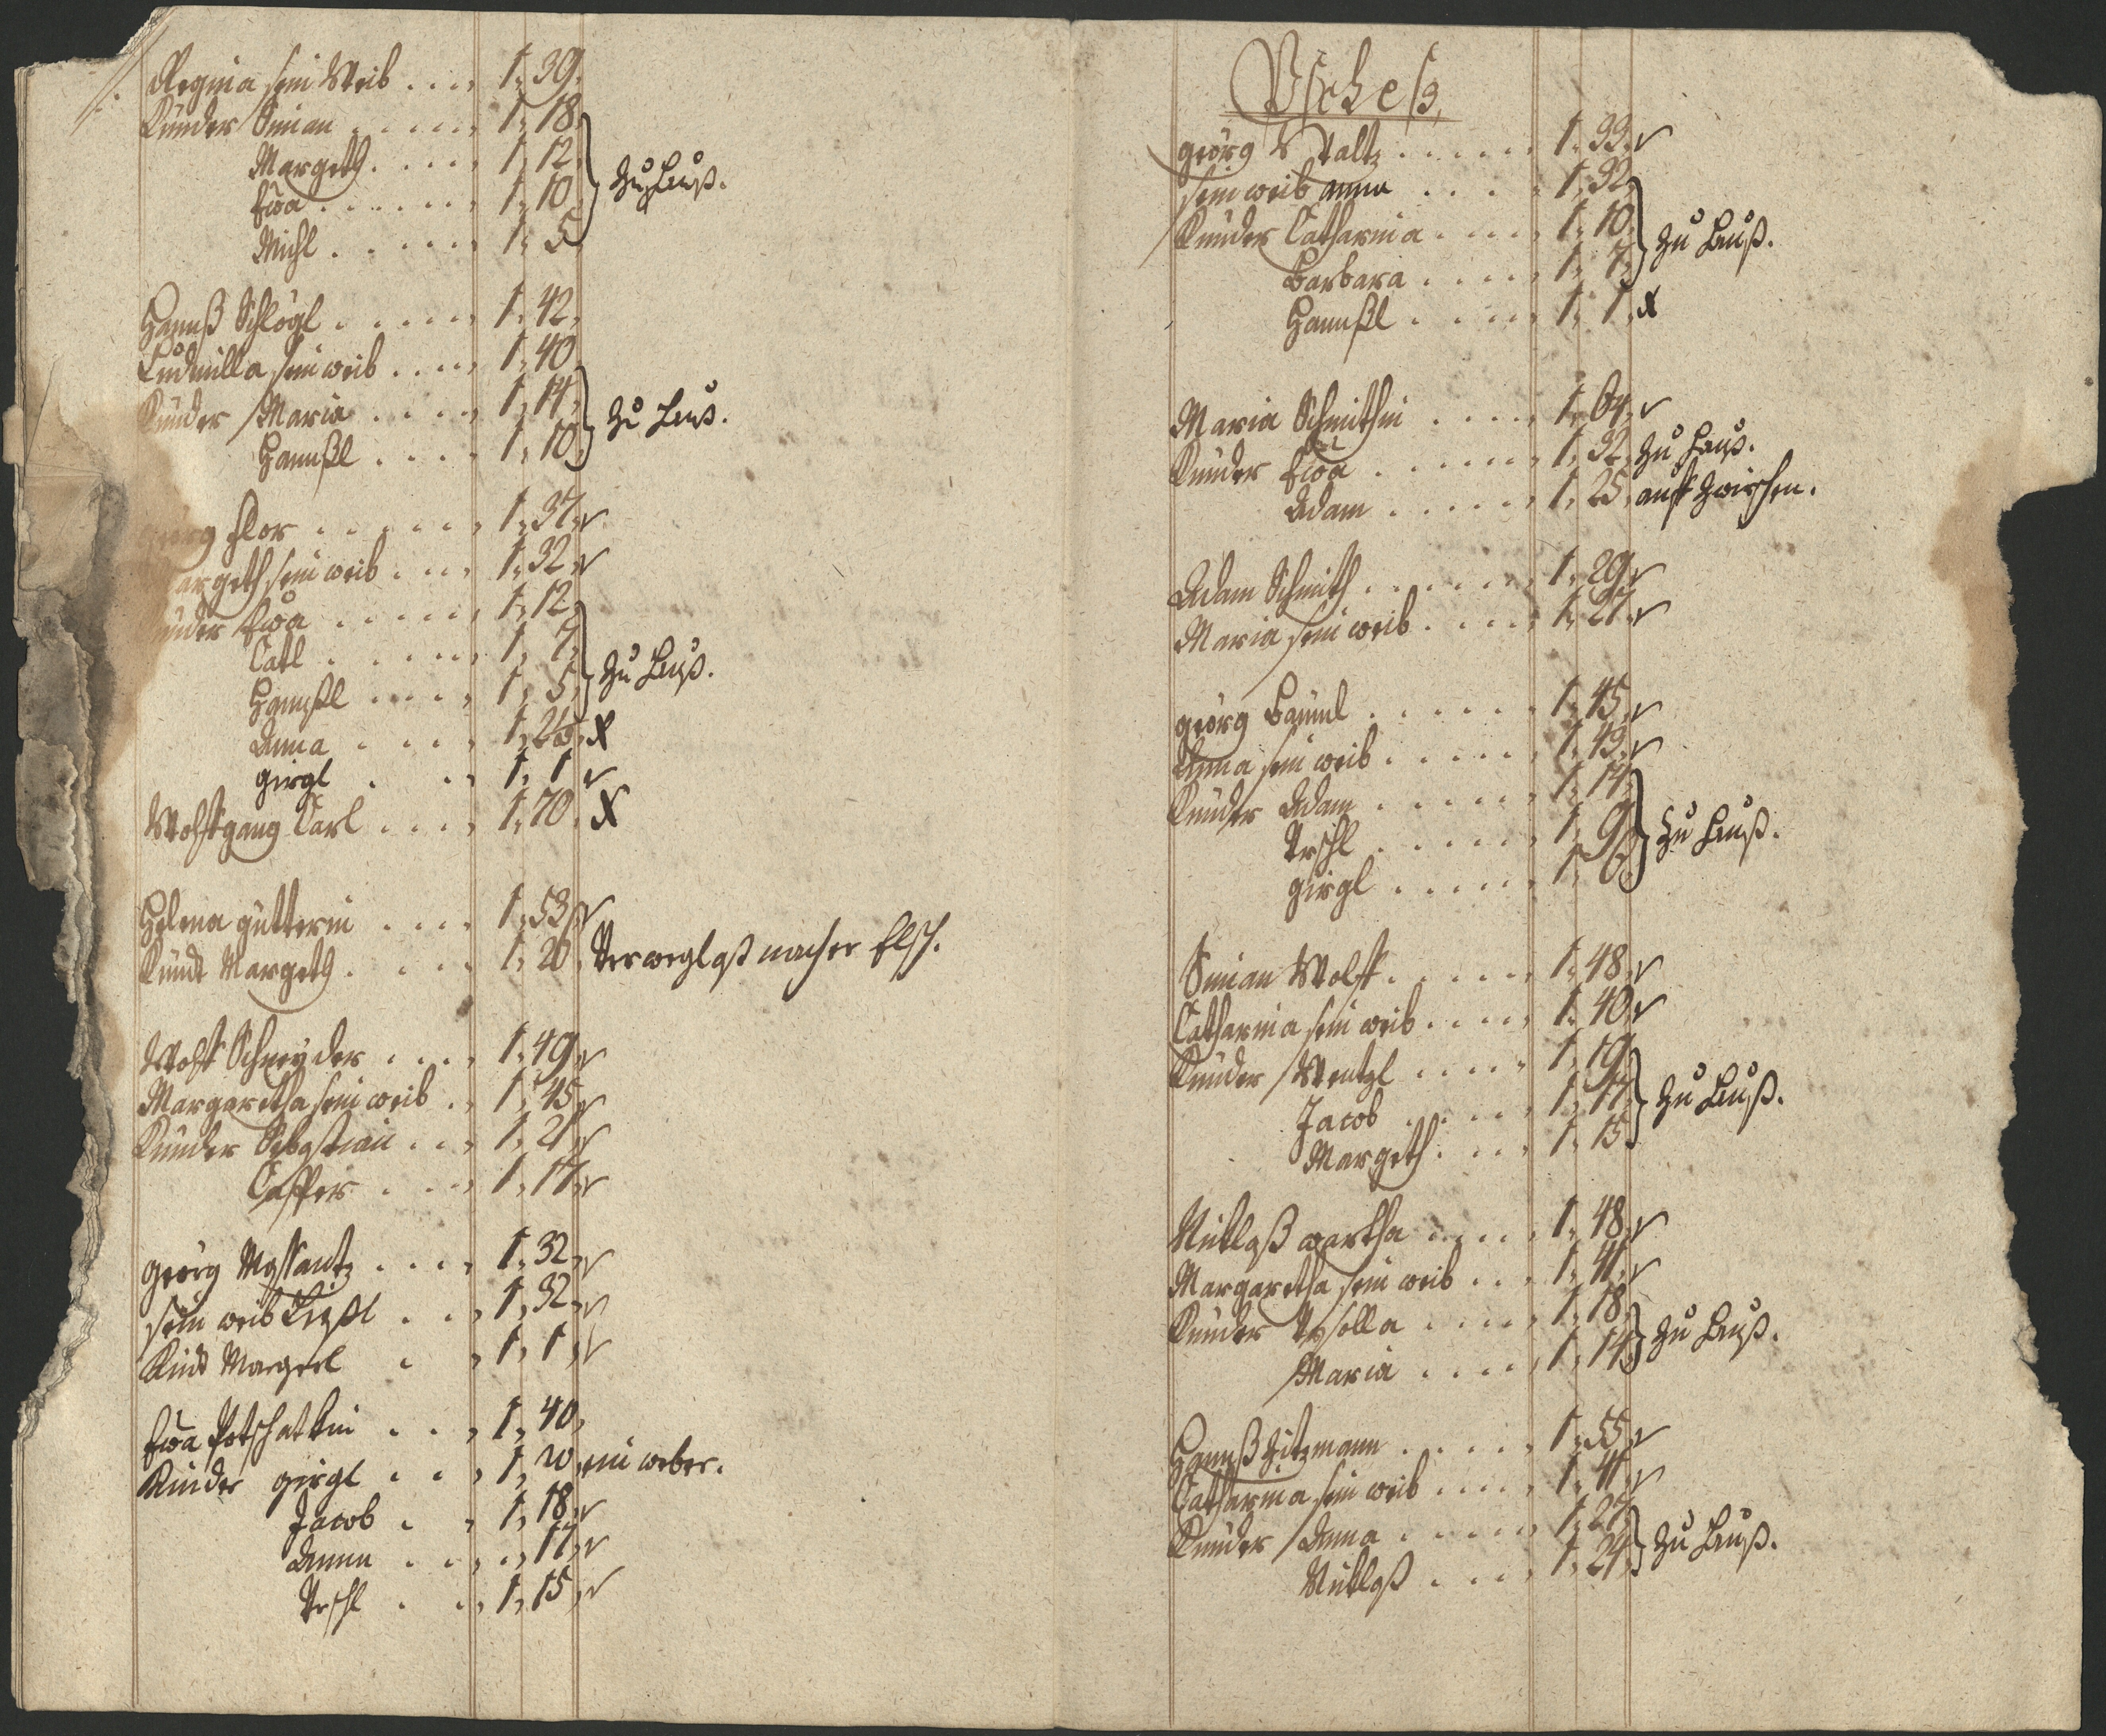 Regina sein Weib .... 1. 39.
Künder Siman ..... 1. 18.
Margeth ..... 1. 12.
Ewa ...... 1. 10. zu Hauß.
Michl ..... 1. 5.
Hannß Schlögl ..... 1. 42.
Ludmilla sein weib .... 1. 40
Künder Maria .... 1. 14.
Hannßl .... 1. 10. zu Hauß.
Flor ...... 1. 37.
argeth sein weib .... 1. 32
ünder Ewa ..... 1. 12.
Catl ..... 1. 7.
Hannßl .... 1. 5. zu Hauß.
Anna .... 1. X
girgl . .. 1. 1
Wolffgang Carl .... 1. 70. X
Helena gütterin .... 1. 53
Kündt Margeth .... 1. 20.
Wolff Schneyder .... 1. 49
Margaretha sein weib .. 1. 45
Künder Sebastian ... 1. 21
Casper ... 1. 17
georg .... 1. 32
sein weib Lißl ... 1. 32
Kind Margerl . . 1. 1
Ewa Potschatkin ... 1. 40,
Kinder girgl ... 1. 20 ein weber.
Jacob . . 1. 18
Anna .... 17
Urschl . .. 1. 15
Uscheß
georg Staltz ..... 1. 33
sein weib anna .... 1. 32
Künder Catharina .... 1. 10
Barbara .... 1. 7. zu Hauß.
Hannßl .... 1. 1. X
Maria Schmithin .... 1. 64
Künder Ewa ..... 1. 32. zu Hauß.
Adam ..... 1. 25.
Adam Schmith ...... 1. 29
Maria sein weib .... 1. 27
georg Bäuml ...... 1. 45
Anna sein weib ..... 1. 43
Künder Adam ..... 1. 14
Urschl ..... 1. 9 zu Hauß.
girgl ..... 1. 6
Siman Wolff ..... 1. 48
Catharina sein weib .... 1. 40
Künder Wentzl .... 1. 19
Jacob .... 1. 17 zu Hauß.
Margeth .... 1. 15
Niklaß wartha .... 1. 48
Margaretha sein weib ... 1. 41
Künder .... 1. 18
Maria .... 1. 14 zu Hauß.
Hannß Zitzmann ..... 1. 55
Catharina sein weib .... 1. 41
Künder Anna ..... 1. 27
Niklaß .... 1. 24 zu Hauß.